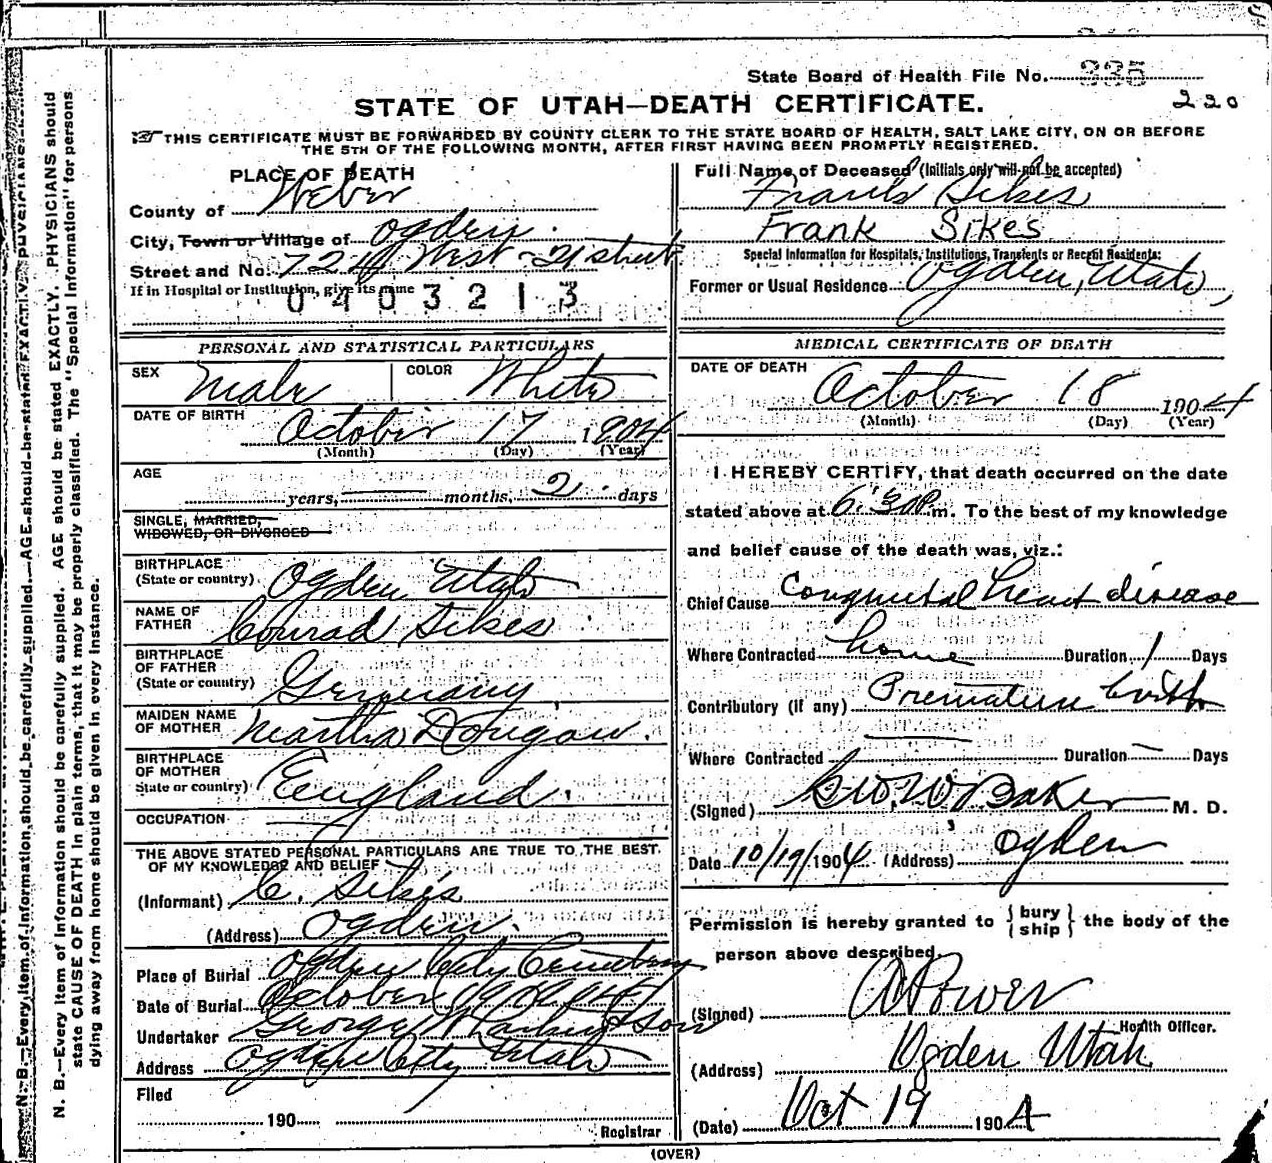 State Board of Health File No. 335
220
STATE OF UTAH—DEATH CERTIFICATE.
THIS CERTIFICATE MUST BE FORWARDED BY COUNTY CLERK TO THE STATE BOARD OF HEALTH, SALT LAKE CITY, ON OR BEFORE
THE 5TH OF THE FOLLOWING MONTH, AFTER FIRST HAVING BEEN PROMPTLY REGISTERED.
PLACE OF DEATH
County of Weber
City, Town or Village of Ogden.
Street and No. West 21 street
If in Hospital or Institution, give its name
0403213
Full Name of Deceased (Initials only will not be accepted)
Frank Sikes
Frank Sikes
Special Information for Hospitals, Institutions, Transients or Recent Residents:
Former or Usual Residence Ogden, Utah,
PERSONAL AND STATISTICAL PARTICULARS
SEX Male COLOR White
DATE OF BIRTH
October 17 1904
(Month) (Day) (Year)
AGE
years, months, 2 days
SINGLE, MARRIED,
WIDOWED, OR DIVORCED
BIRTHPLACE
(State or country) Ogden Utah
NAME OF
FATHER Conrad Sikes
BIRTHPLACE
OF FATHER
(State or country) Germany
MAIDEN NAME
OF MOTHER Martha
BIRTHPLACE
OF MOTHER
State or country) England.
OCCUPATION
THE ABOVE STATED PERSONAL PARTICULARS ARE TRUE TO THE BEST
OF MY KNOWLEDGE AND BELIEF
(Informant) C. Sikes
(Address) Ogden.
Place of Burial Ogden City Cemetery
Date of Burial October 19
Undertaker George W Larkin & Son
Address Ogden City Utah
Filed
190
Registrar
MEDICAL CERTIFICATE OF DEATH
DATE OF DEATH
October 18 1904
(Month) (Day) (Year)
I HEREBY CERTIFY, that death occurred on the date
stated above at 6:30 P.m. To the best of my knowledge
and belief cause of the death was, viz.:
Chief Cause Congenital heart disease
Where Contracted home Duration 1 Days
Contributory (if any) Premature birth
Where Contracted Duration Days
(Signed) Baker M. D.
Date 10/19/1904 (Address) Ogden
Permission is hereby granted to {bury
ship} the body of the
person above described.
(Signed) A Power
Health Officer.
(Address) Ogden Utah
(Date) Oct 19 1904
(OVER)
N. B.—Every item of Information should be carefully supplied. AGE should be stated EXACTLY. PHYSICIANS should
state CAUSE OF DEATH in plain terms, that it may be properly classified. The "Special Information" for persons
dying away from home should be given in every instance.
N. B.—Every item of information should be carefully supplied. AGE should be stated EXACTLY. PHYSICIANS